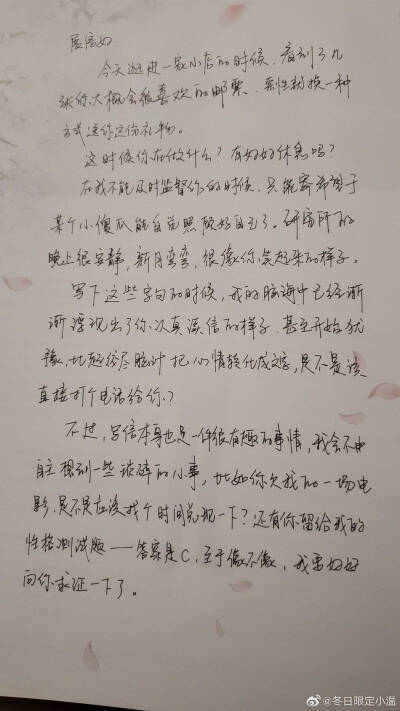 展信如
今天逛进一家小店的时候，看到了几
张你大概会很喜欢的邮票，索性就换一种
方式送你这份礼物。
这时候你在做什么？有好好休息吗？
在我不能及时监督你的时候，只能寄希望于
某个小傻瓜能自觉照顾好自己了。研究所的
晚上很安静，新月弯弯，很像你笑起来的样子。
写下这些字句的时候，我的脑海中已经渐
渐浮现出了你认真读信的样子，甚至开始犹
豫，比起绞尽脑汁把心情转化成文字，是不是该
直接打个电话给你？
不过，写信本身也是一件很有趣的事情，我会不由
自主想到一些琐碎的小事，比如你欠我的一场电
影，是不是应该找个时间兑现一下？还有你留给我的
性格测试题——答案是C，至于像不像，我要好好
向你求证一下了。
@冬日限定小温